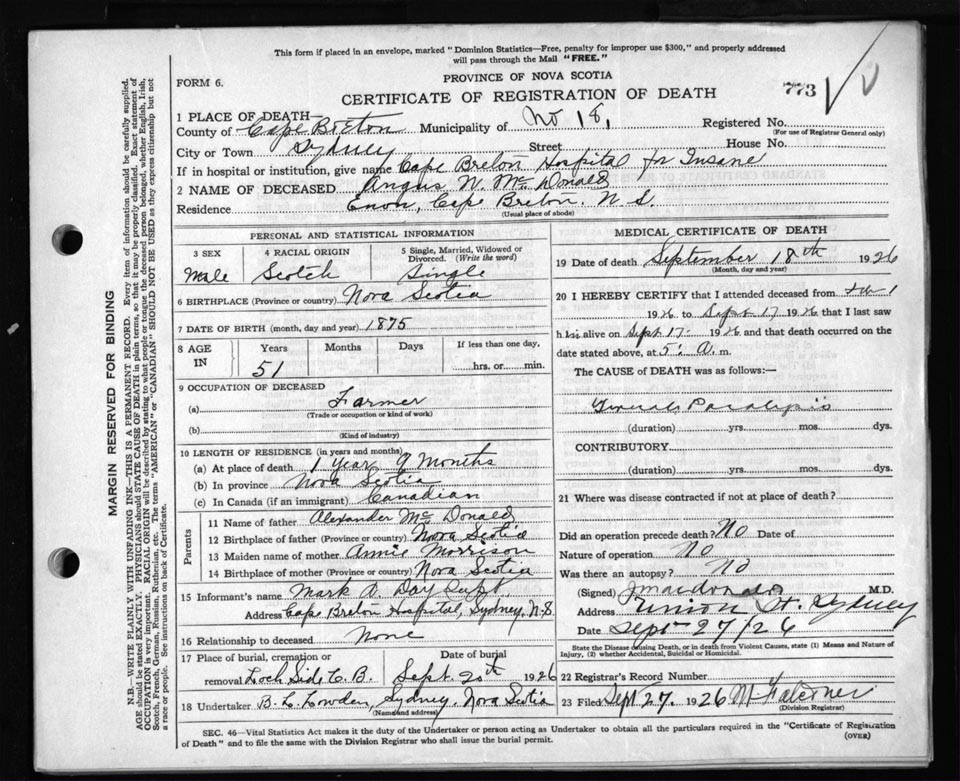 This form if placed in an envelope, marked "Dominion Statistics—Free, penalty for improper use $300," and properly addressed
will pass through the Mail "FREE."
FORM 6.
PROVINCE OF NOVA SCOTIA
773
CERTIFICATE OF REGISTRATION OF DEATH
1 PLACE OF DEATH
County of Cape Breton Municipality of No 18, Registered No.
(For use of Registrar General only)
City or Town Sydney Street House No.
If in hospital or institution, give name Cape Breton Hospital for Insane
2 NAME OF DECEASED Angus N. Mc Donald
Residence Enon, Cape Breton. N. S.
(Usual place of abode)
PERSONAL AND STATISTICAL INFORMATION
3 SEX 4 RACIAL ORIGIN 5 Single, Married, Widowed or Divorced. (Write the word)
Male Scotch Single
6 BIRTHPLACE (Province or country) Nova Scotia
7 DATE OF BIRTH (month, day and year) 1875
8 AGE IN Years Months Days If less than one day,
51 hrs. or min.
9 OCCUPATION OF DECEASED
(a) Farmer
(Trade or occupation or kind of work)
(b)
(Kind of industry)
10 LENGTH OF RESIDENCE (in years and months)
(a) At place of death 1 year 9 months
(b) In province Nova Scotia
(c) In Canada (if an immigrant) Canadian
Parents
11 Name of father Alexander Mc Donald
12 Birthplace of father (Province or country) Nova Scotia
13 Maiden name of mother Annie Morrison
14 Birthplace of mother (Province or country) Nova Scotia
15 Informant's name Mark A. Day Supt
Address Cape Breton Hospital, Sydney, N.S
16 Relationship to deceased None
17 Place of burial, cremation or removal Loch Side C. B. Date of burial Sept. 20th 1926
18 Undertaker B. L. Lowden, Sydney. Nova Scotia
(Name and address)
MEDICAL CERTIFICATE OF DEATH
19 Date of death September 18th 1926
(Month, day and year)
20 I HEREBY CERTIFY that I attended deceased from Feb 1
1926 to Sept 17 1926 that I last saw
h is alive on Sept 17. 1926 and that death occurred on
date stated above, at 5. A. m.
The CAUSE of DEATH was as follows:—
General Paralysis
(duration) yrs. mos. dys.
CONTRIBUTORY.
(duration) yrs. mos. dys.
21 Where was disease contracted if not at place of death?
Did an operation precede death? No Date of
Nature of operation No
Was there an autopsy? No
(Signed) J Macdonald M.D.
Address Union St. Sydney
Date Sept 27/26
State the Disease causing Death, or in death from Violent Causes, state (1) Means and Nature of
Injury, (2) whether Accidental, Suicidal or Homicidal.
22 Registrar's Record Number
23 Filed Sept 27. 1926 M. Falconer
(Division Registrar)
SEC. 46—Vital Statistics Act makes it the duty of the Undertaker or person acting as Undertaker to obtain all the particulars required in the "Certificate of Registration
of Death" and to file the same with the Division Registrar who shall issue the burial permit.
(OVER)
MARGIN RESERVED FOR BINDING
N.B.—WRITE PLAINLY WITH UNFADING INK—THIS IS A PERMANENT RECORD. Every item of information should be carefully supplied.
AGE should be stated EXACTLY. PHYSICIANS should STATE CAUSE OF DEATH in plain terms, so that it may be properly classified. Exact statement of
OCCUPATION is very important. RACIAL ORIGIN will be described by stating to what people or tongue the deceased person belonged, whether English, Irish,
Scotch, French, German, Russian, Ruthenian, etc. The terms "AMERICAN" or "CANADIAN" SHOULD NOT BE USED as they express citizenship but not
a race or people. See instructions on back of Certificate.